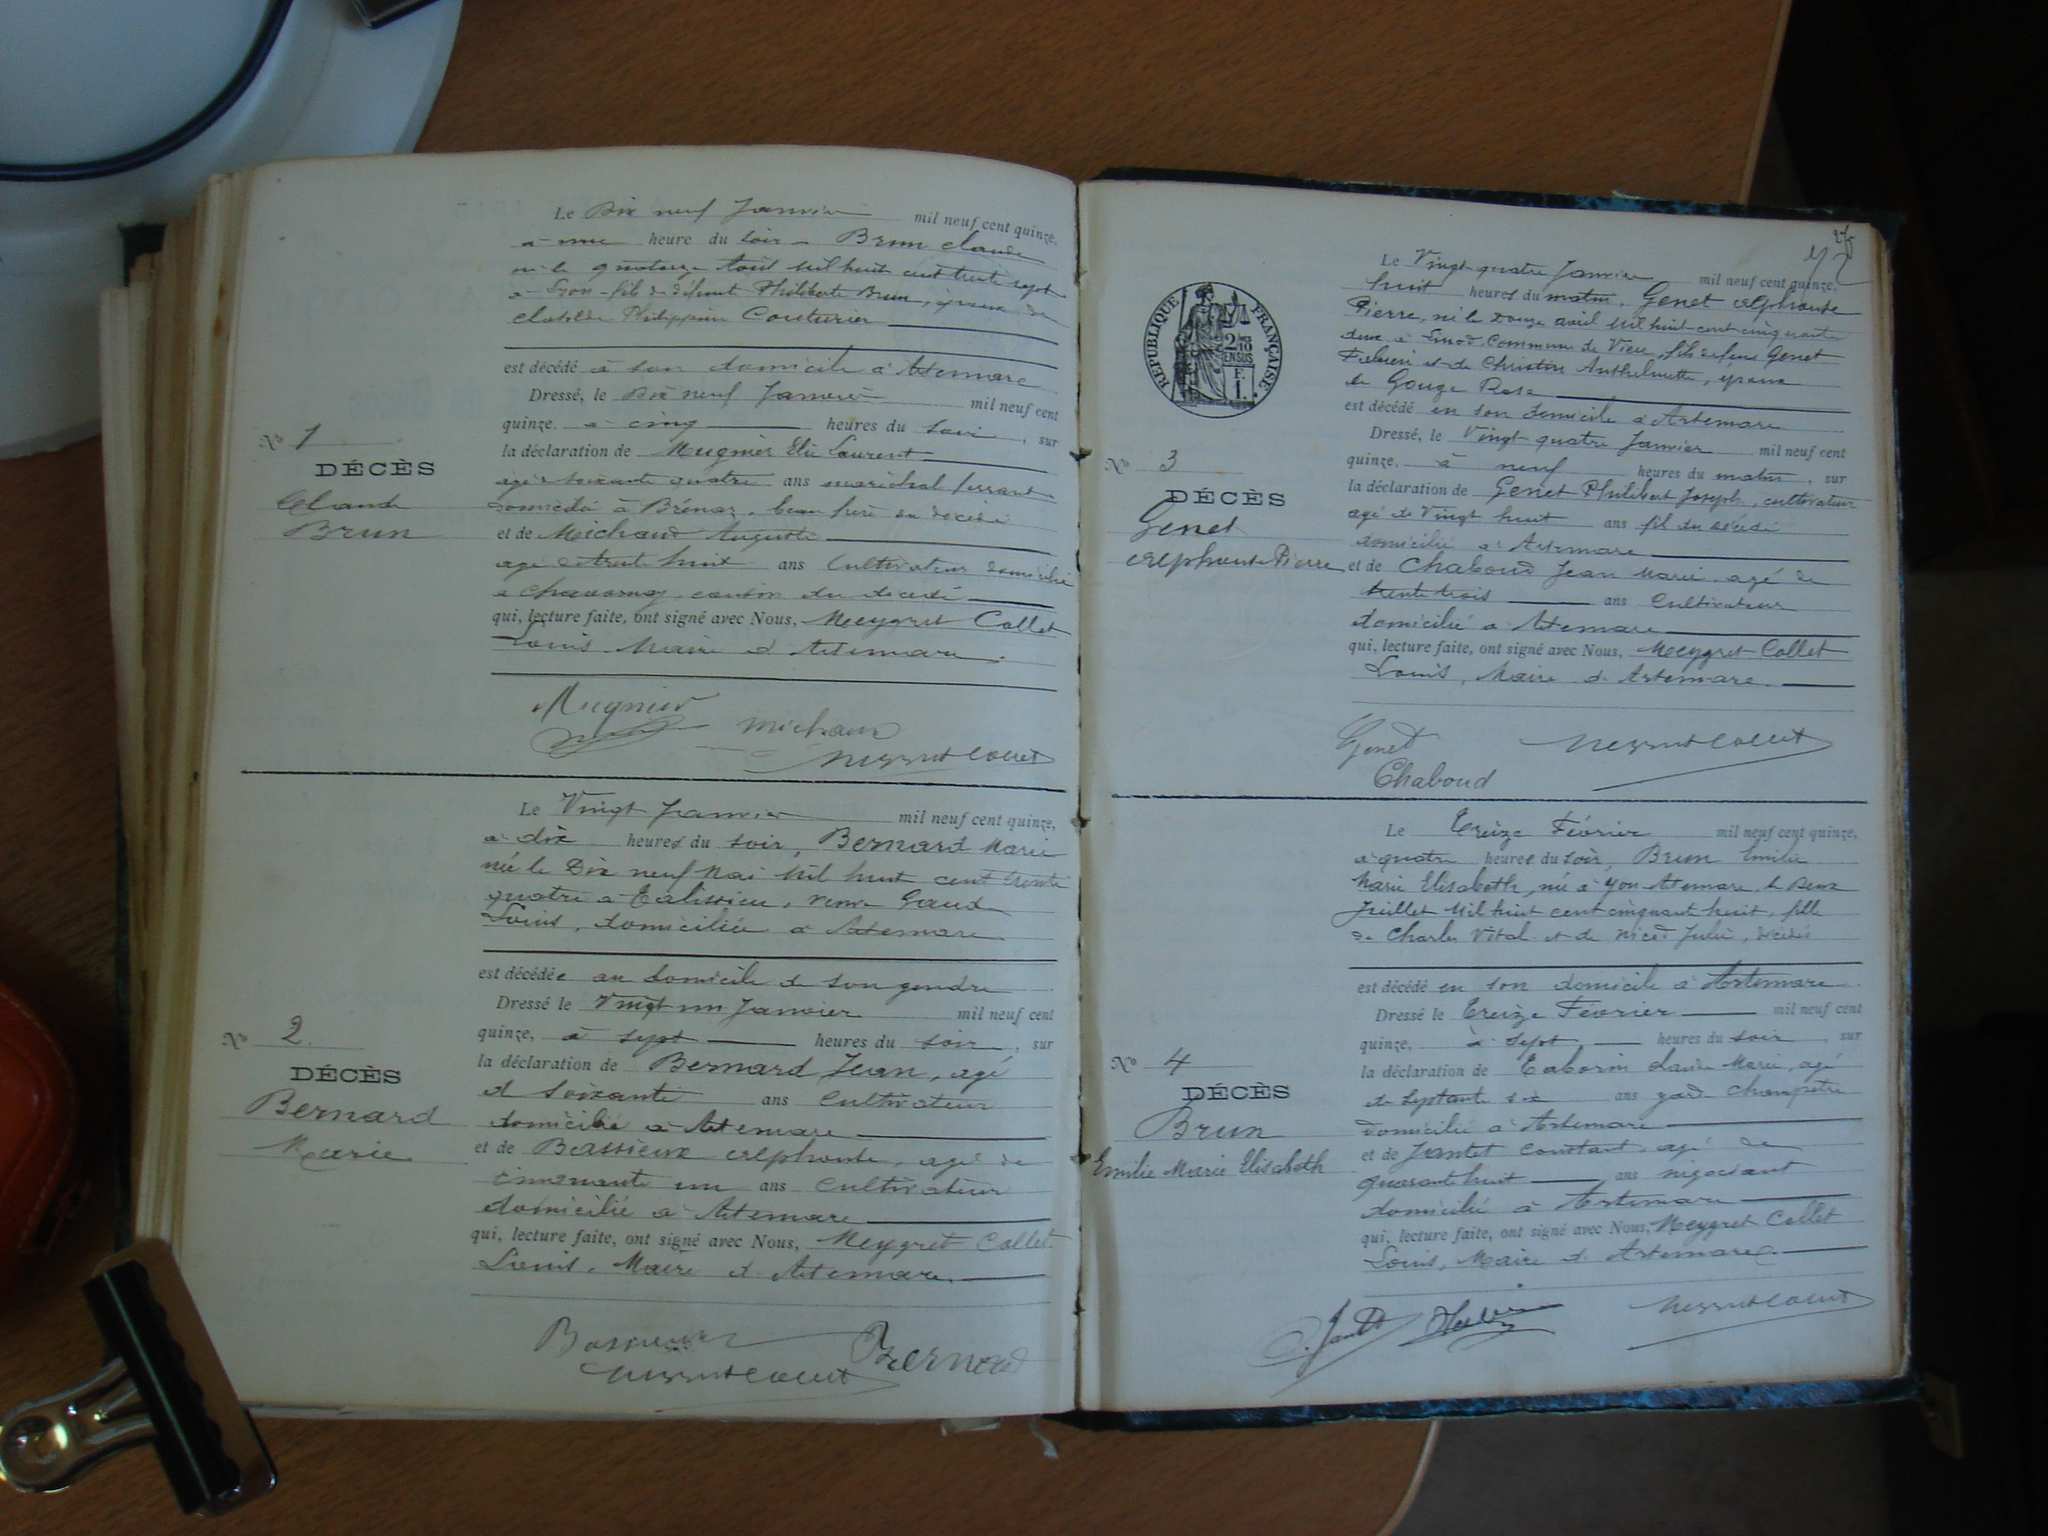 Le Dix neuf Janvier mil neuf cent quinze,
à une heure du soir Brun Claude
né le quatorze Août Mil huit cent trente sept
à Lyon fils de défunt Philiberte Brun, époux de
Clotilde Philippine Couturier
est décédé à son domicile à Artemare
Dressé, le Dix neuf Janvier mil neuf cent
quinze, à cinq heures du soir, sur
la déclaration de Mugnier Elie Laurent
agé de soixante quatre ans maréchal ferrant
domicilié à Brénaz, beau frère du décédé
et de Michaud Auguste
agé de trente huit ans Cultivateur domicilié
à Chavornay, cousin du décédé
qui, lecture faite, ont signé avec Nous, Meygret Collet
Louis Maire d'Artemare.
No 1
DÉCÈS
Claude
Brun
Mugnier
Michaud
Meygret Collet
Le Vingt Janvier mil neuf cent quinze,
à dix heures du soir, Bernard Marie
née le Dix neuf Mai Mil huit cent trente
quatre à Talissieu, veuve Gaud
Louis, domiciliée à Artemare
est décédée au domicile de son gendre
Dressé le Vingt un Janvier mil neuf cent
quinze, à sept heures du soir, sur
la déclaration de Bernard Jean, agé
de soixante ans Cultivateur
domicilié à Artemare
et de Bassieux Alphonse, agé de
Cinquante un ans Cultivateur
domicilié à Artemare
qui, lecture faite, ont signé avec Nous, Meygret Collet
Louis, Maire d'Artemare.
No 2.
DÉCÈS
Bernard
Marie
Bassieux
Bernard
Meygret Collet
RÉPUBLIQUE FRANÇAISE
2/10 EN SUS
Le Vingt quatre Janvier mil neuf cent quinze,
huit heures du matin, Genet Alphonse
Pierre, né le Douze avril Mil huit cent cinquante
deux à Commune de Vieu, fils de feu Genet
et de Christin Anthelmette, époux
de Gouge Rose
est décédé en son domicile à Artemare
Dressé, le Vingt quatre Janvier mil neuf cent
quinze, à neuf heures du matin, sur
la déclaration de Genet Philibert Joseph, cultivateur
agé de Vingt huit ans fil du décédé
domicilié à Artemare
et de Chaboud Jean Marie agé de
trente trois ans Cultivateur
domicilié à Artemare
qui, lecture faite, ont signé avec Nous, Meygret Collet
Louis, Maire d'Artemare.
No 3
DÉCÈS
Genet
Alphonse Pierre
Genet
Meygret Collet
Chaboud
Le Treize Février mil neuf cent quinze,
à quatre heures du soir, Brun Emilie
Marie Elisabeth, née à Yon Artemare, le Deux
Juillet Mil huit cent cinquante huit, fille
de Charles Vital et de Nicod Julie, décédés
est décédée en son domicile à Artemare
Dressé le Treize Février mil neuf cent
quinze, à sept heures du soir, sur
la déclaration de Marie, agé
de Septante six ans garde Champêtre
domicilié à Artemare
et de Jantet Constant, agé de
quarante huit ans négociant
domicilié à Artemare
qui, lecture faite, ont signé avec Nous, Meygret Collet
Louis, Maire d'Artemare.
No 4
DÉCÈS
Brun
Emilie Marie Elisabeth
Jantet
Meygret Collet